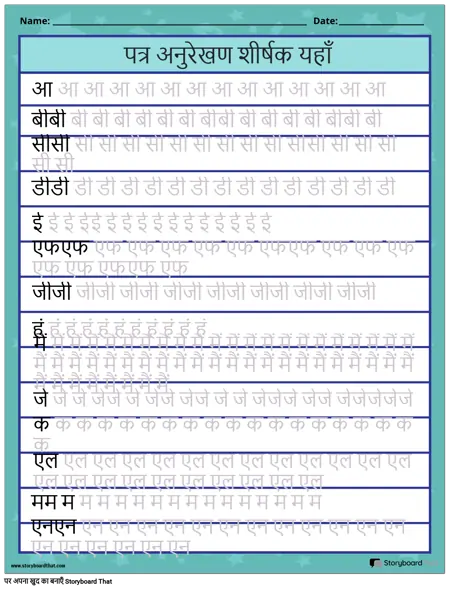 Name: Date:
पत्र अनुरेखण शीर्षक यहाँ
आ आ आ आ आ आ आ आ आ आ आ आ आ आ
बीबी बी बी बी बी बी बीबी बी बी बी बी बीबी बी
सीसी सी सी सी सी सी सी सी सी सी सीसी सी सी सी
सी सी
डीडी डी डी डी डी डी डी डी डी डी डी डी डी डी डी
ई ई ई ईई ई ई ई ई ई ई ई ई ई ई ई
एफएफ एफ एफ एफ एफ एफ एफ एफएफ एफ एफ एफ
एफ एफ एफएफ एफ
जीजी जीजी जीजी जीजी जीजी जीजी जीजी जीजी
हं हं हं हं हं हं हं हं हं हं हं
जे जे जे जेजे जे जे जे जे जे जेजे जेजेजेजे
क क क क क क क क क क क क क क क क क
क
एल एल एल एल एल एल एल एल एल एल एल एल एल
एल एल एल एल एल एल एल एल एल एल
मम म म म म म म म म म म म म म म म
एनएन एन एन एन एन एन एन एन एन एन एन एन
एन एन एन एन एन एन
www.storyboardthat.com
StoryboardThat
पर अपना खुद का बनाएँ Storyboard That